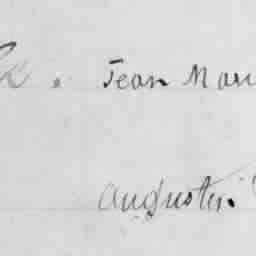 Jean Mari
Augustin